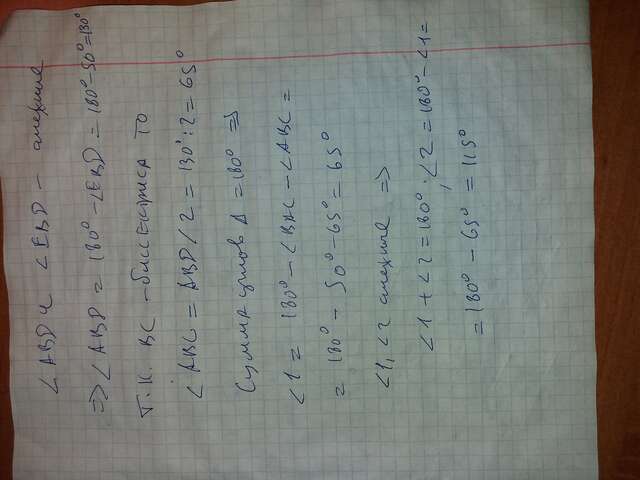 ∠ABD и ∠EBD – смежные
=> ∠ABD = 180° - ∠EBD = 180° - 50° = 130°
Т.к. BC – биссектриса то
∠ABC = ABD / 2 = 130° : 2 = 65°
Сумма углов Δ = 180° =>
∠1 = 180° - ∠BAC - ∠ABC =
= 180° - 50° - 65° = 65°
∠1, ∠2 смежные =>
∠1 + ∠2 = 180°, ∠2 = 180° - ∠1 =
= 180° - 65° = 115°